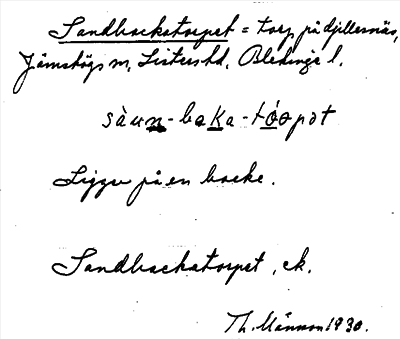 Sandbackatorpet = torp på djellernäs,
Jämshögs sn, Listers hd, Blekinge l.
sàun-baka-tóopot
Ligger på en backe.
Sandbackatorpet, ek.
Th. Månsson 1930.